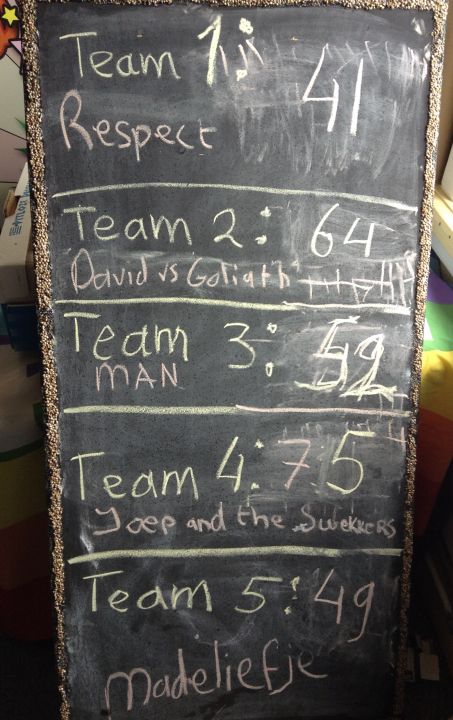 Team 1: 41
Respect
Team 2: 64
David vs Goliath
Team 3:
MAN
Team 4: 75
Joep and the Swekkers
Team 5: 49
Madeliefje